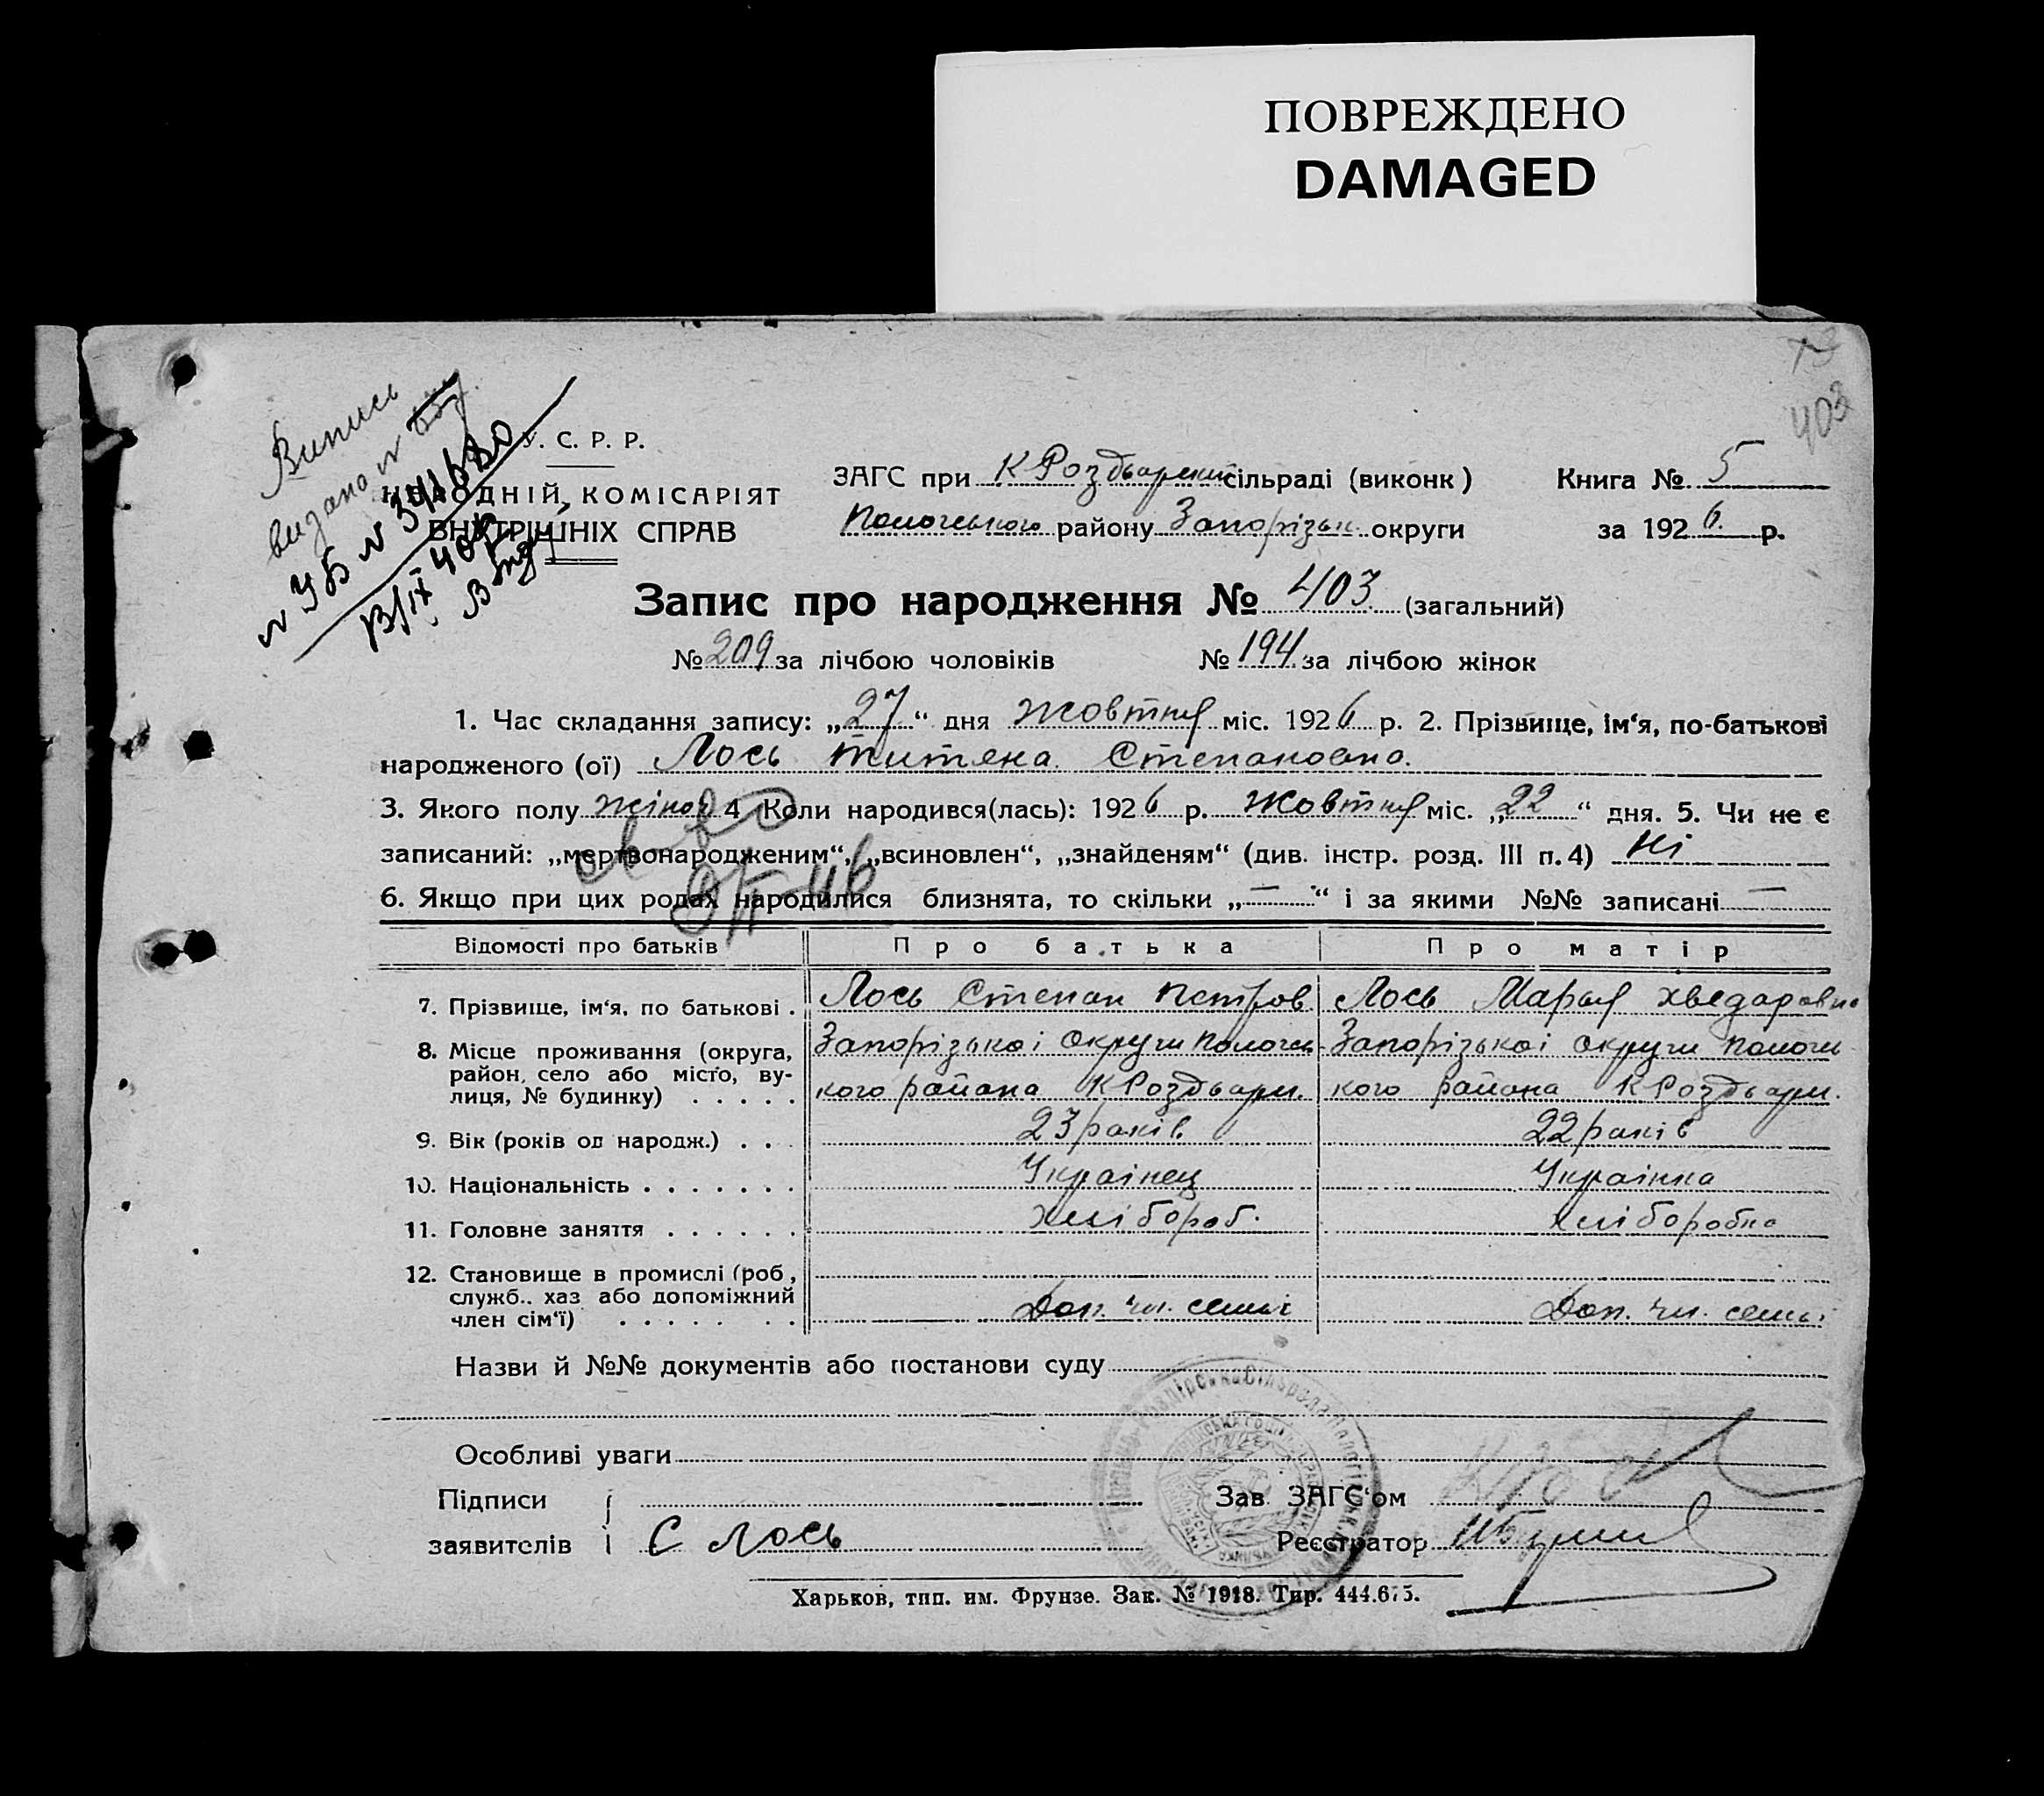 ПОВРЕЖДЕНО
DAMAGED
73
403
Випись
видано
У. С. Р. Р.
НАРОДНІЙ КОМІСАРІЯТ
ВНУТРІШНІХ СПРАВ
ЗАГС при К Роздварски сільраді (виконк) Книга № 5
Пологського району Запорізьк. округи за 1926 р.
Запис про народження № 403 (загальний)
№ 209 за лічбою чоловіків № 194 за лічбою жінок
1. Час складання запису: „27“ дня жовтня міс. 1926 р. 2. Прізвище, ім‘я, по-батькові
народженого (ої) Лось Титяна Степановна.
3. Якого полу жіноч 4 Коли народився(лась): 1926 р. жовтня міс. „22“ дня. 5. Чи не є
записаний: „мертвонародженим“, „всиновлен“, „знайденям“ (див. інстр. розд. III п. 4) ні
6. Якщо при цих родах народилися близнята, то скільки „—“ і за якими №№ записані —
Відомості про батьків Про батька Про матір
7. Прізвище, ім‘я, по батькові . Лось Степан Петров. Лось Марья Хведаровна
8. Місце проживання (округа, Запорізькоі округи Пологсь- Запорізькоі округи Пологсь-
район, село або місто, ву-
лиця, № будинку) . . . . . кого района К Роздвари. кого района К Роздвари.
9. Вік (років од народж.) . . . 23 раків. 22 раків
10. Національність . . . . . . . Украінец Украінка
11. Головне заняття . . . . . . хлібороб. хліборобка
12. Становище в промислі (роб.,
служб., хаз або допоміжний
член сім‘ї) . . . . . . . Доп. чл. семьі Доп. чл. семьі
Назви й №№ документів або постанови суду
Особливі уваги
Підписи Зав ЗАГС‘ом
заявителів С Лось Реєстратор
Харьков, тип. им. Фрунзе. Зак. № 1918. Тир. 444.675.